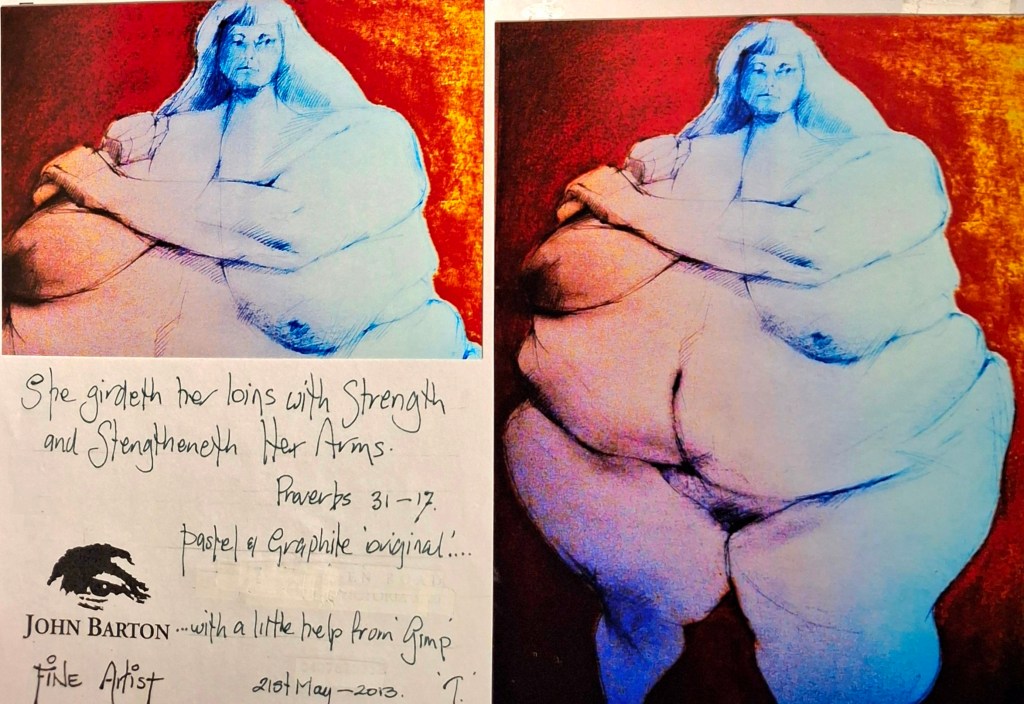 She girdeth her loins with Strength
and Stengtheneth Her Arms.
Proverbs 31-17.
pastel & Graphite 'original'....
JOHN BARTON ...with a little help from 'Gimp'
FINE Artist
21st May-2013. 'J.'